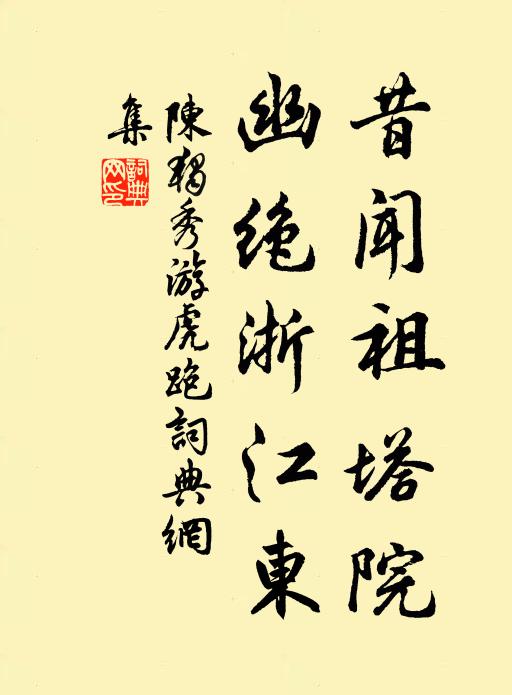 昔闻祖塔院
幽绝浙江東
陳獨秀游虎跑詞典網
集
詞典
网印